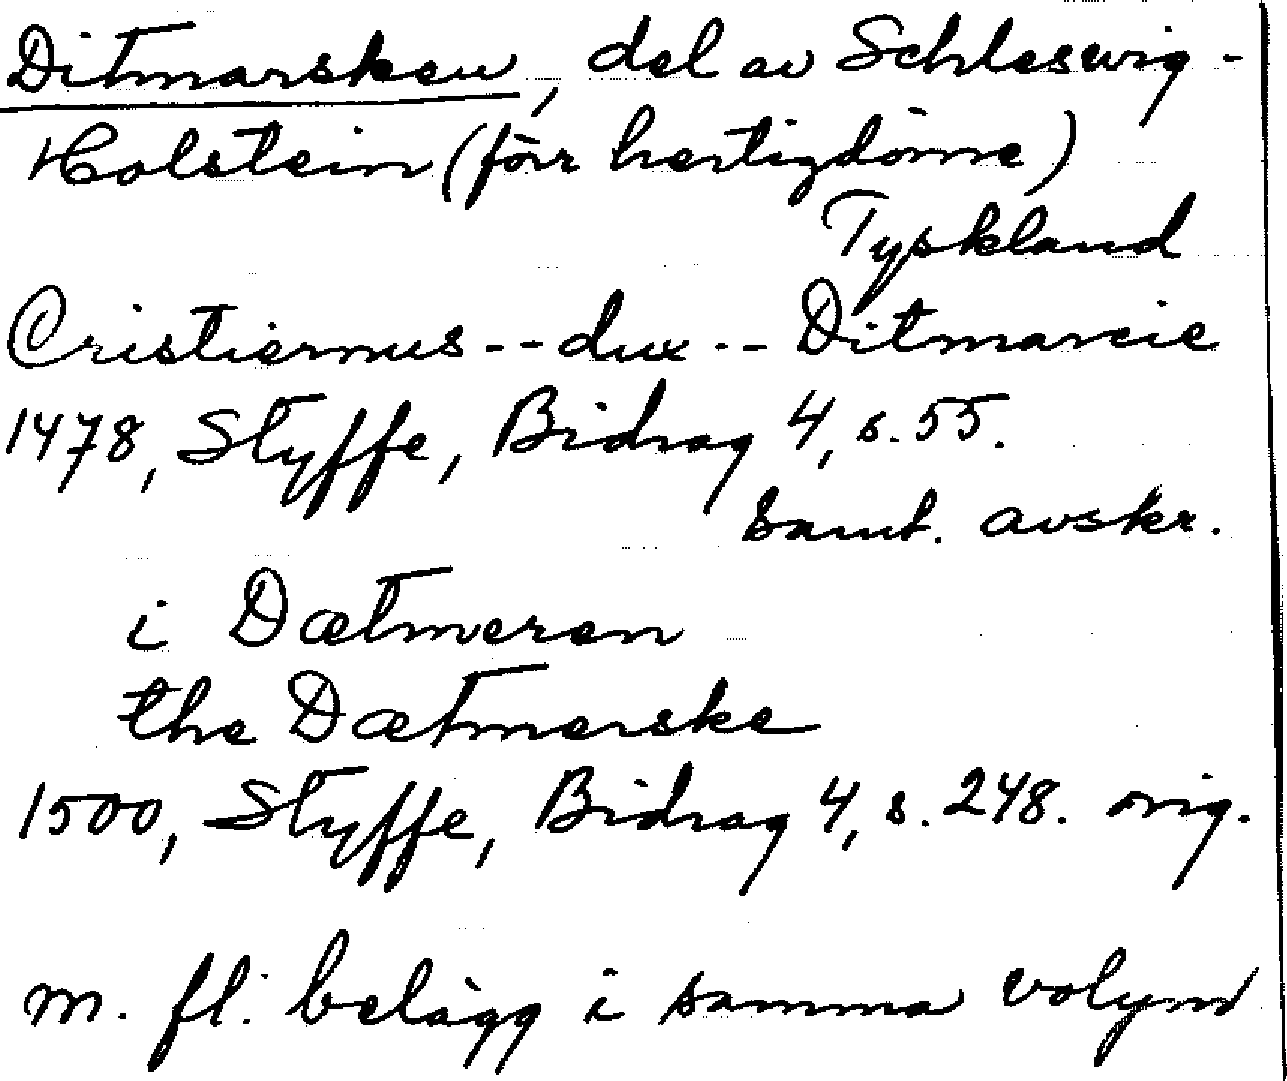 Ditmarsken, del av Schleswig-
Holstein (förr hertigdöme)
Tyskland
Cristiernus -- dux -- Ditmarcie
1478, Styffe, Bidrag 4, s. 55.
samt. avskr.
i Dætmeren
the Dætmerske
1500, Styffe, Bidrag 4, s. 248. orig.
m. fl. belägg i samma volym